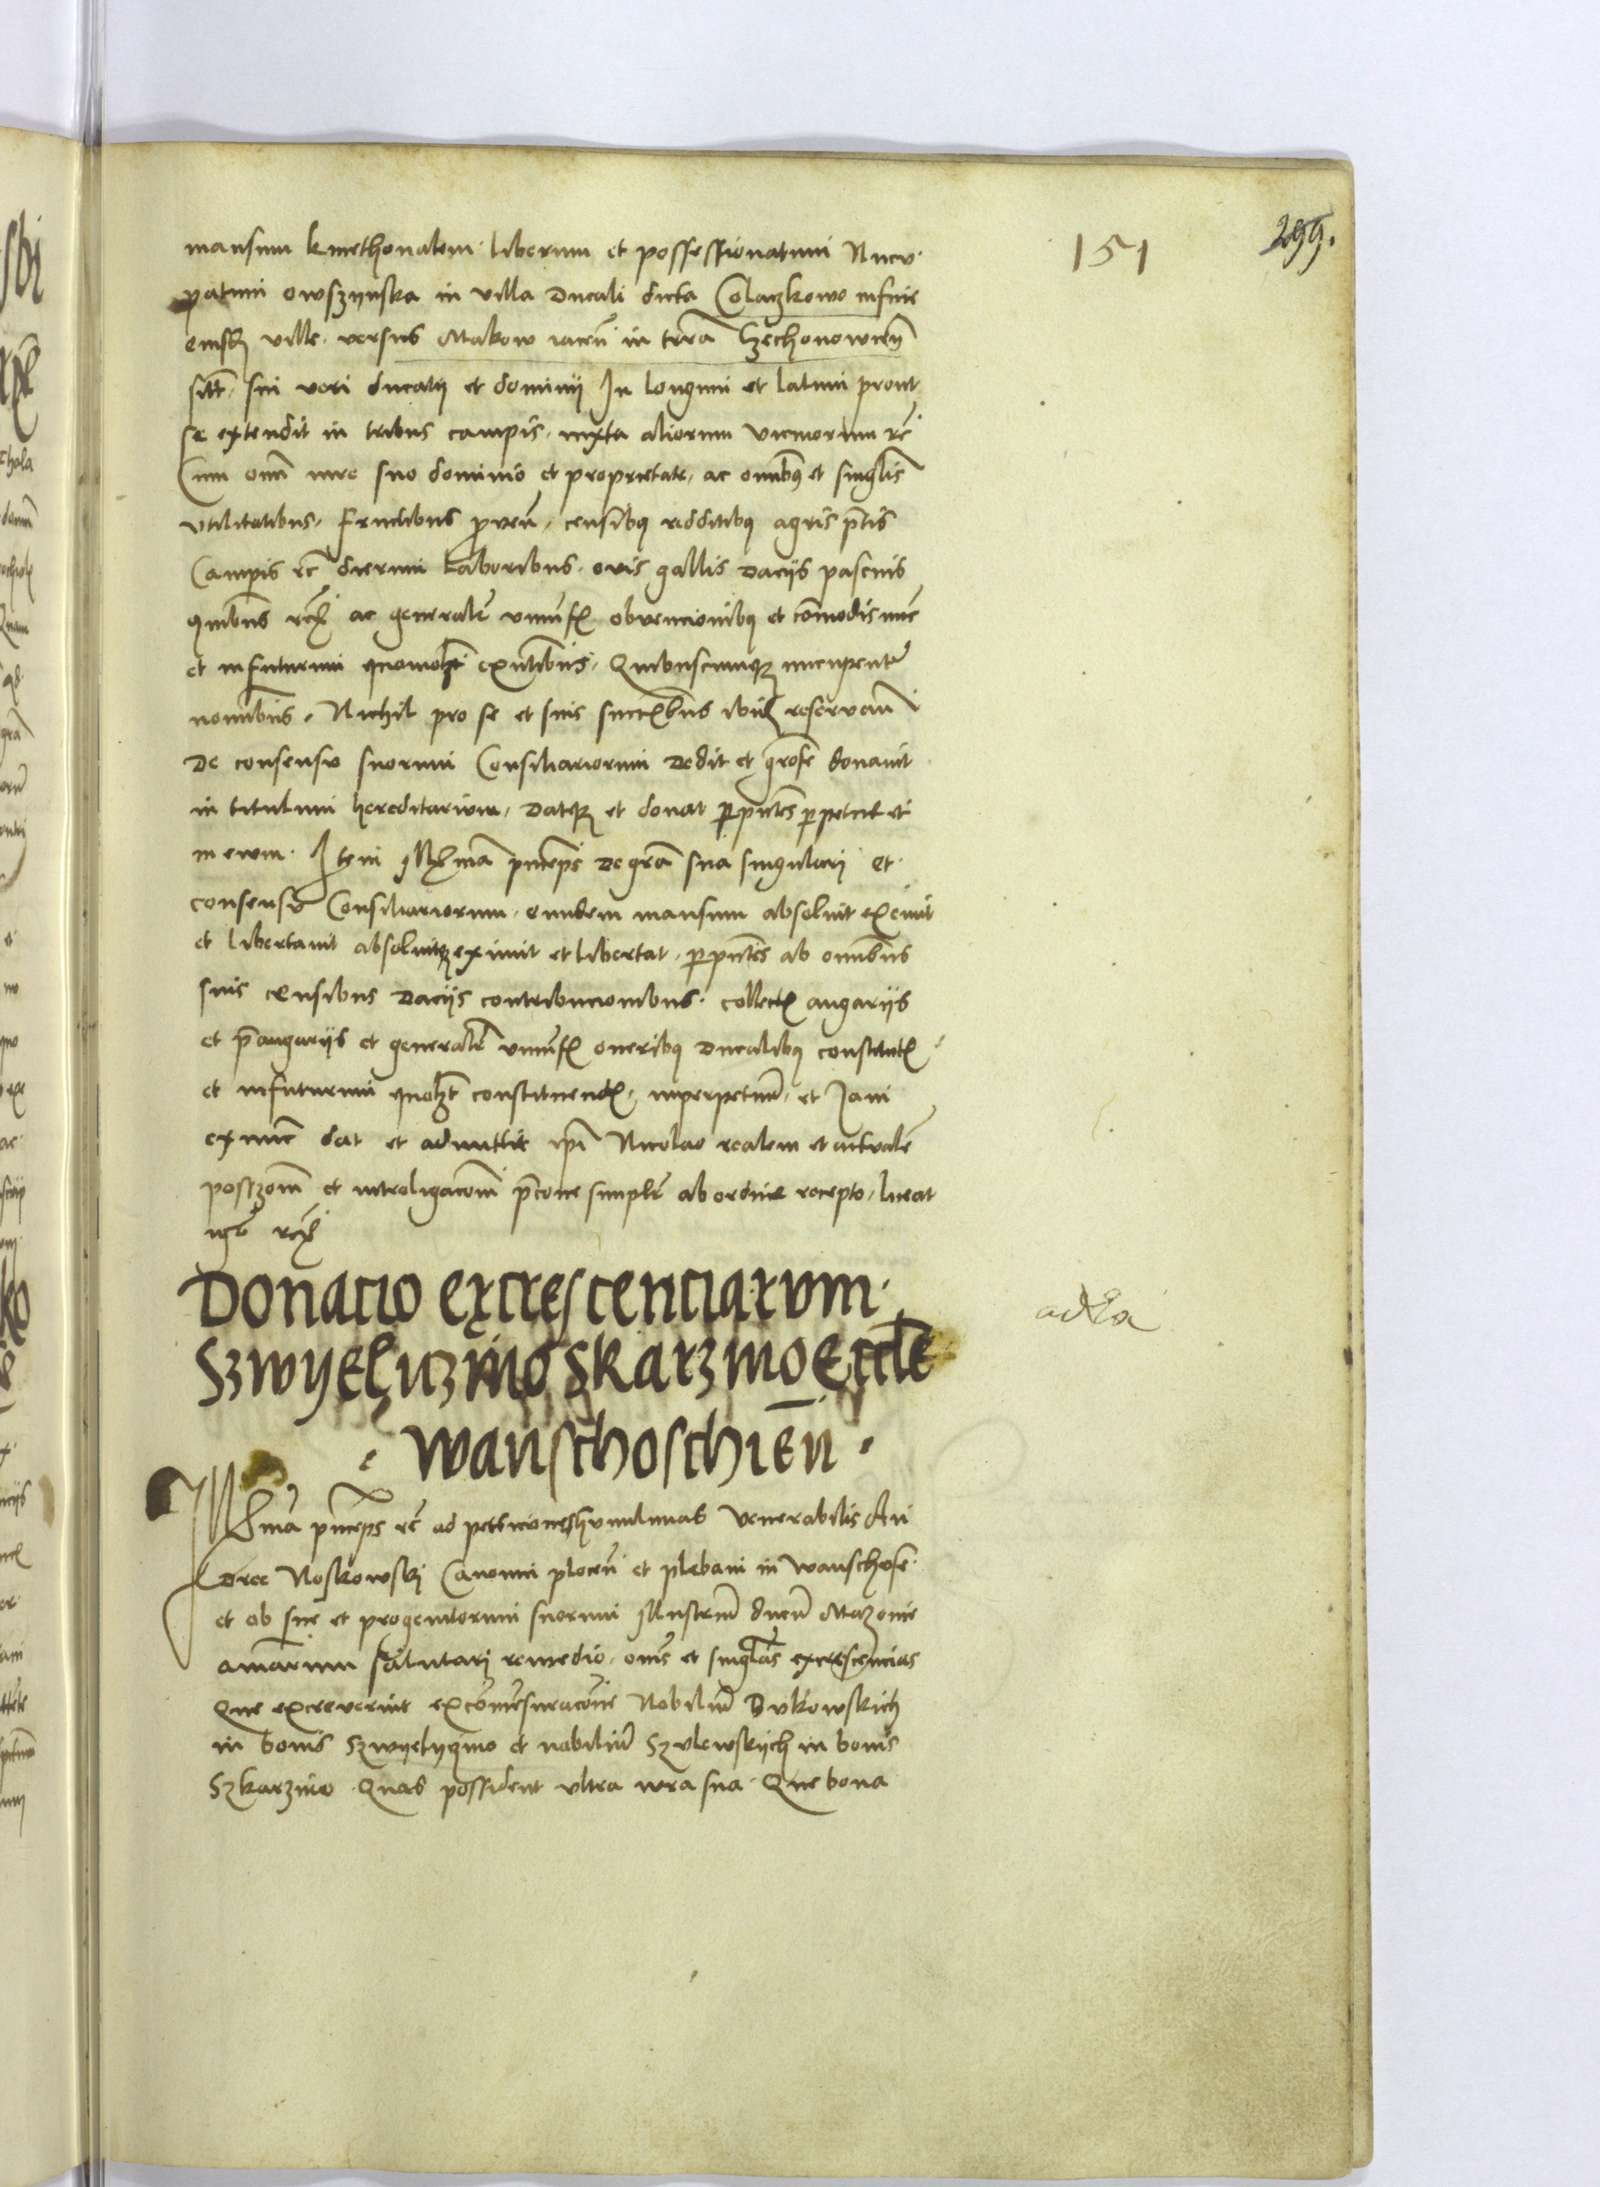 151
299.
mansum kmethonalem liberum et possessionatum Nucu
patum owszynska in villa Ducali dicta Colaczkowo in fine
eiusdē ville versus Makow iaceñ in terra Czechonowieñ
sitt. sui veri ducatus et dominij In longum et latum prout
se extendit in tribus campis iuxta aliorum vicinorum rc̄
Cum omni iure suo dominio et proprietate, ac omnibꝫ et singlis
vtilitatibus, fructibus proveñ, censibꝫ redditibꝫ agris pratis
Campis rc̄ dierum laboribus ovis gallis Dacijs pascuis
ac generalr̄ obvencionibꝫ et cōmodis nunc
et infuturum quomolt̄ exn̄tibus, Quibuscumqꝫ nuncupentur
nominibus, Nichil pro se et suis reservañ
De consensu suorum Consiliariorum Dedit et grōse donavit
in titulum hereditarium, Datqꝫ et donat per pn̄tes perpetue et
in evum. Item Illma princeps De gra sua singulari et
consensu Consiliariorum eundem mansum absolvit exemit
et libertavit absolvitqꝫ eximit et libertat, per pn̄tes ab omnibus
suis censibus Dacijs contribucionibus collectis angarijs
et pangarijs et generalr̄ oneribꝫ Ducalibꝫ constitutis
et infuturum constituendis, inperpetuum, et Jam
ex nunc dat et admittit ipi Nicolao realem et actualē
et intro­ligacōm simplr̄ ab ordine recepto, liceat
Donacio excrescenciarum
Szwyelyczino Skarzmo Eccle
Wanschoschieñ
Illma princeps rc̄ ad peticiones humilimas Venerabilis An
dree Noskowski Canonici ploceñ et plebani in Wanschose
et ob sue et progenitorum suorum Illustrium ducum Mazouie
animarum salutari remedio, oms et singlas excrescencias
Que excreverint ex cōmensuracōne Nobilium Bukowskich
in bonis Szwyelyczino et nobilium Szulewskych in bonis
Szkarzmo Quas possident ultra iura sua Que bona